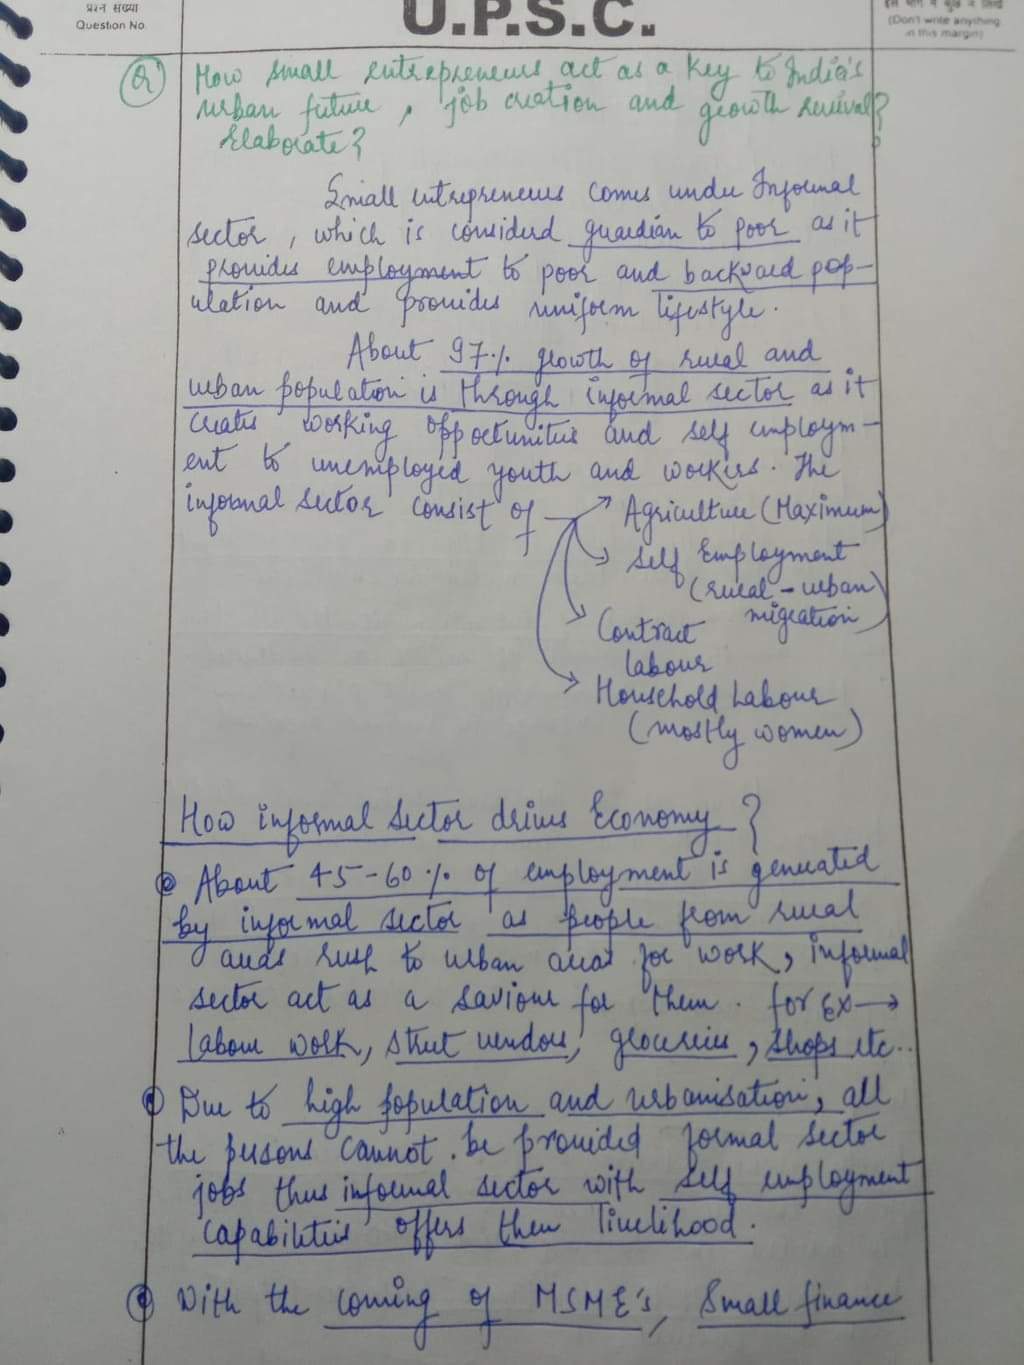 प्रश्न संख्या
Question No.
U.P.S.C.
(Don't write anything
in this margin)
Q1 How small entrepreneurs act as a key to India's
urban future, job creation and growth revival?
Elaborate?
Small entrepreneurs comes under Informal
sector, which is considerd guardian to poor as it
provides employment to poor and backward pop-
ulation and provides uniform lifestyle.
About 97% growth of rural and
urban population is through informal sector as it
creates working opportunities and self employm-
ent to unemployed youth and workers. The
informal sector consist of → Agriculture (Maximum)
→ Self Employment
(rural-urban
migration)
→ Contract
labour
→ Household Labour
(mostly women)
How informal sector drives Economy?
About 45-60% of employment is generated
by informal sector as people from rural
areas rush to urban areas for work, informal
sector act as a saviour for them. for Ex→
labour work, street vendors, groceries, shops etc..
Due to high population and urbanisation, all
the persons cannot be provided formal sector
jobs thus informal sector with self employment
capabilities offers them livelihood.
With the coming of MSME's, Small finance